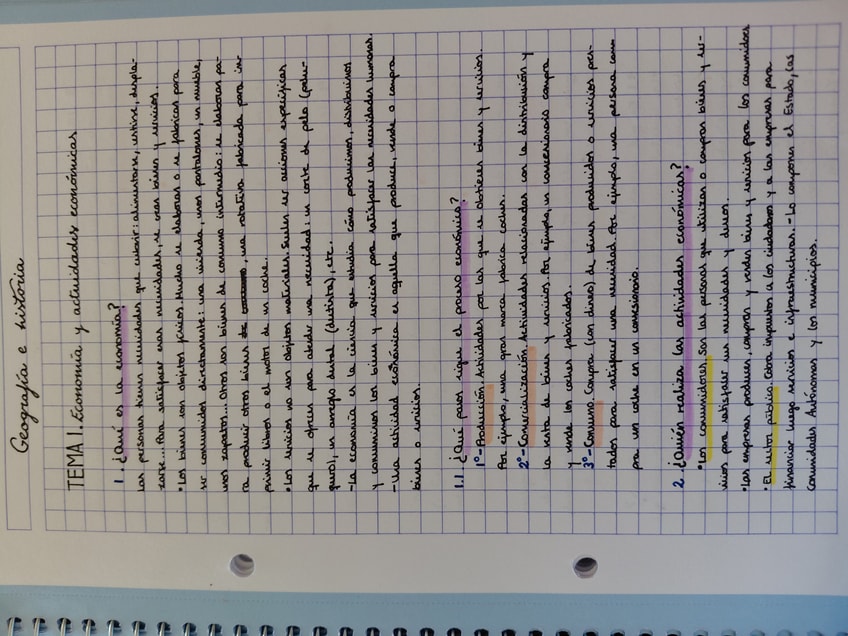 Geografía e historia
TEMA 1. Economía y actividades económicas
1. ¿Qué es la economía?
Las personas tienen necesidades que cubrir: alimentarse, vestirse, despla-
zarse... Para satisfacer esas necesidades, se crean bienes y servicios
• Los bienes son objetos físicos. Muchos se elaboran o se fabrican para
ser consumidos directamente: una vivienda, unos pantalones, un mueble,
unos zapatos... Otros son bienes de consumo intermedio: se elaboran pa-
ra producir otros bienes, una rotativa fabricada para im-
primir libros o el motor de un coche.
• Los servicios no son objetos materiales. Suelen ser acciones específicas
que se ofrecen para atender una necesidad: un corte de pelo (pelu-
quero), un arreglo dental (dentista), etc.
- La economía es la ciencia que estudia cómo producimos, distribuimos
y consumimos los bienes y servicios para satisfacer las necesidades humanas.
- Una actividad económica es aquella que produce, vende o compra
bienes o servicios.
1.1 ¿Qué pasos sigue el proceso económico?
1º- Producción. Actividades por las que se obtienen bienes y servicios.
Por ejemplo, una gran marca fabrica coches.
2º- Comercialización. Actividades relacionadas con la distribución y
la venta de bienes y servicios. Por ejemplo, un concesionario compra
y vende los coches fabricados.
3º- Consumo. Compra (con dinero) de bienes producidos o servicios pres-
tados para satisfacer una necesidad. Por ejemplo, una persona com-
pra un coche en un concesionario.
2. ¿Quién realiza las actividades económicas?
• Los consumidores. Son las personas que utilizan o compran bienes y ser-
vicios para satisfacer sus necesidades y deseos.
• Las empresas producen, compran y venden bienes y servicios para los consumidores
• El sector público. Cobra impuestos a los ciudadanos y a las empresas para
financiar luego servicios e infraestructuras. - Lo componen el Estado, las
Comunidades Autónomas y los municipios.